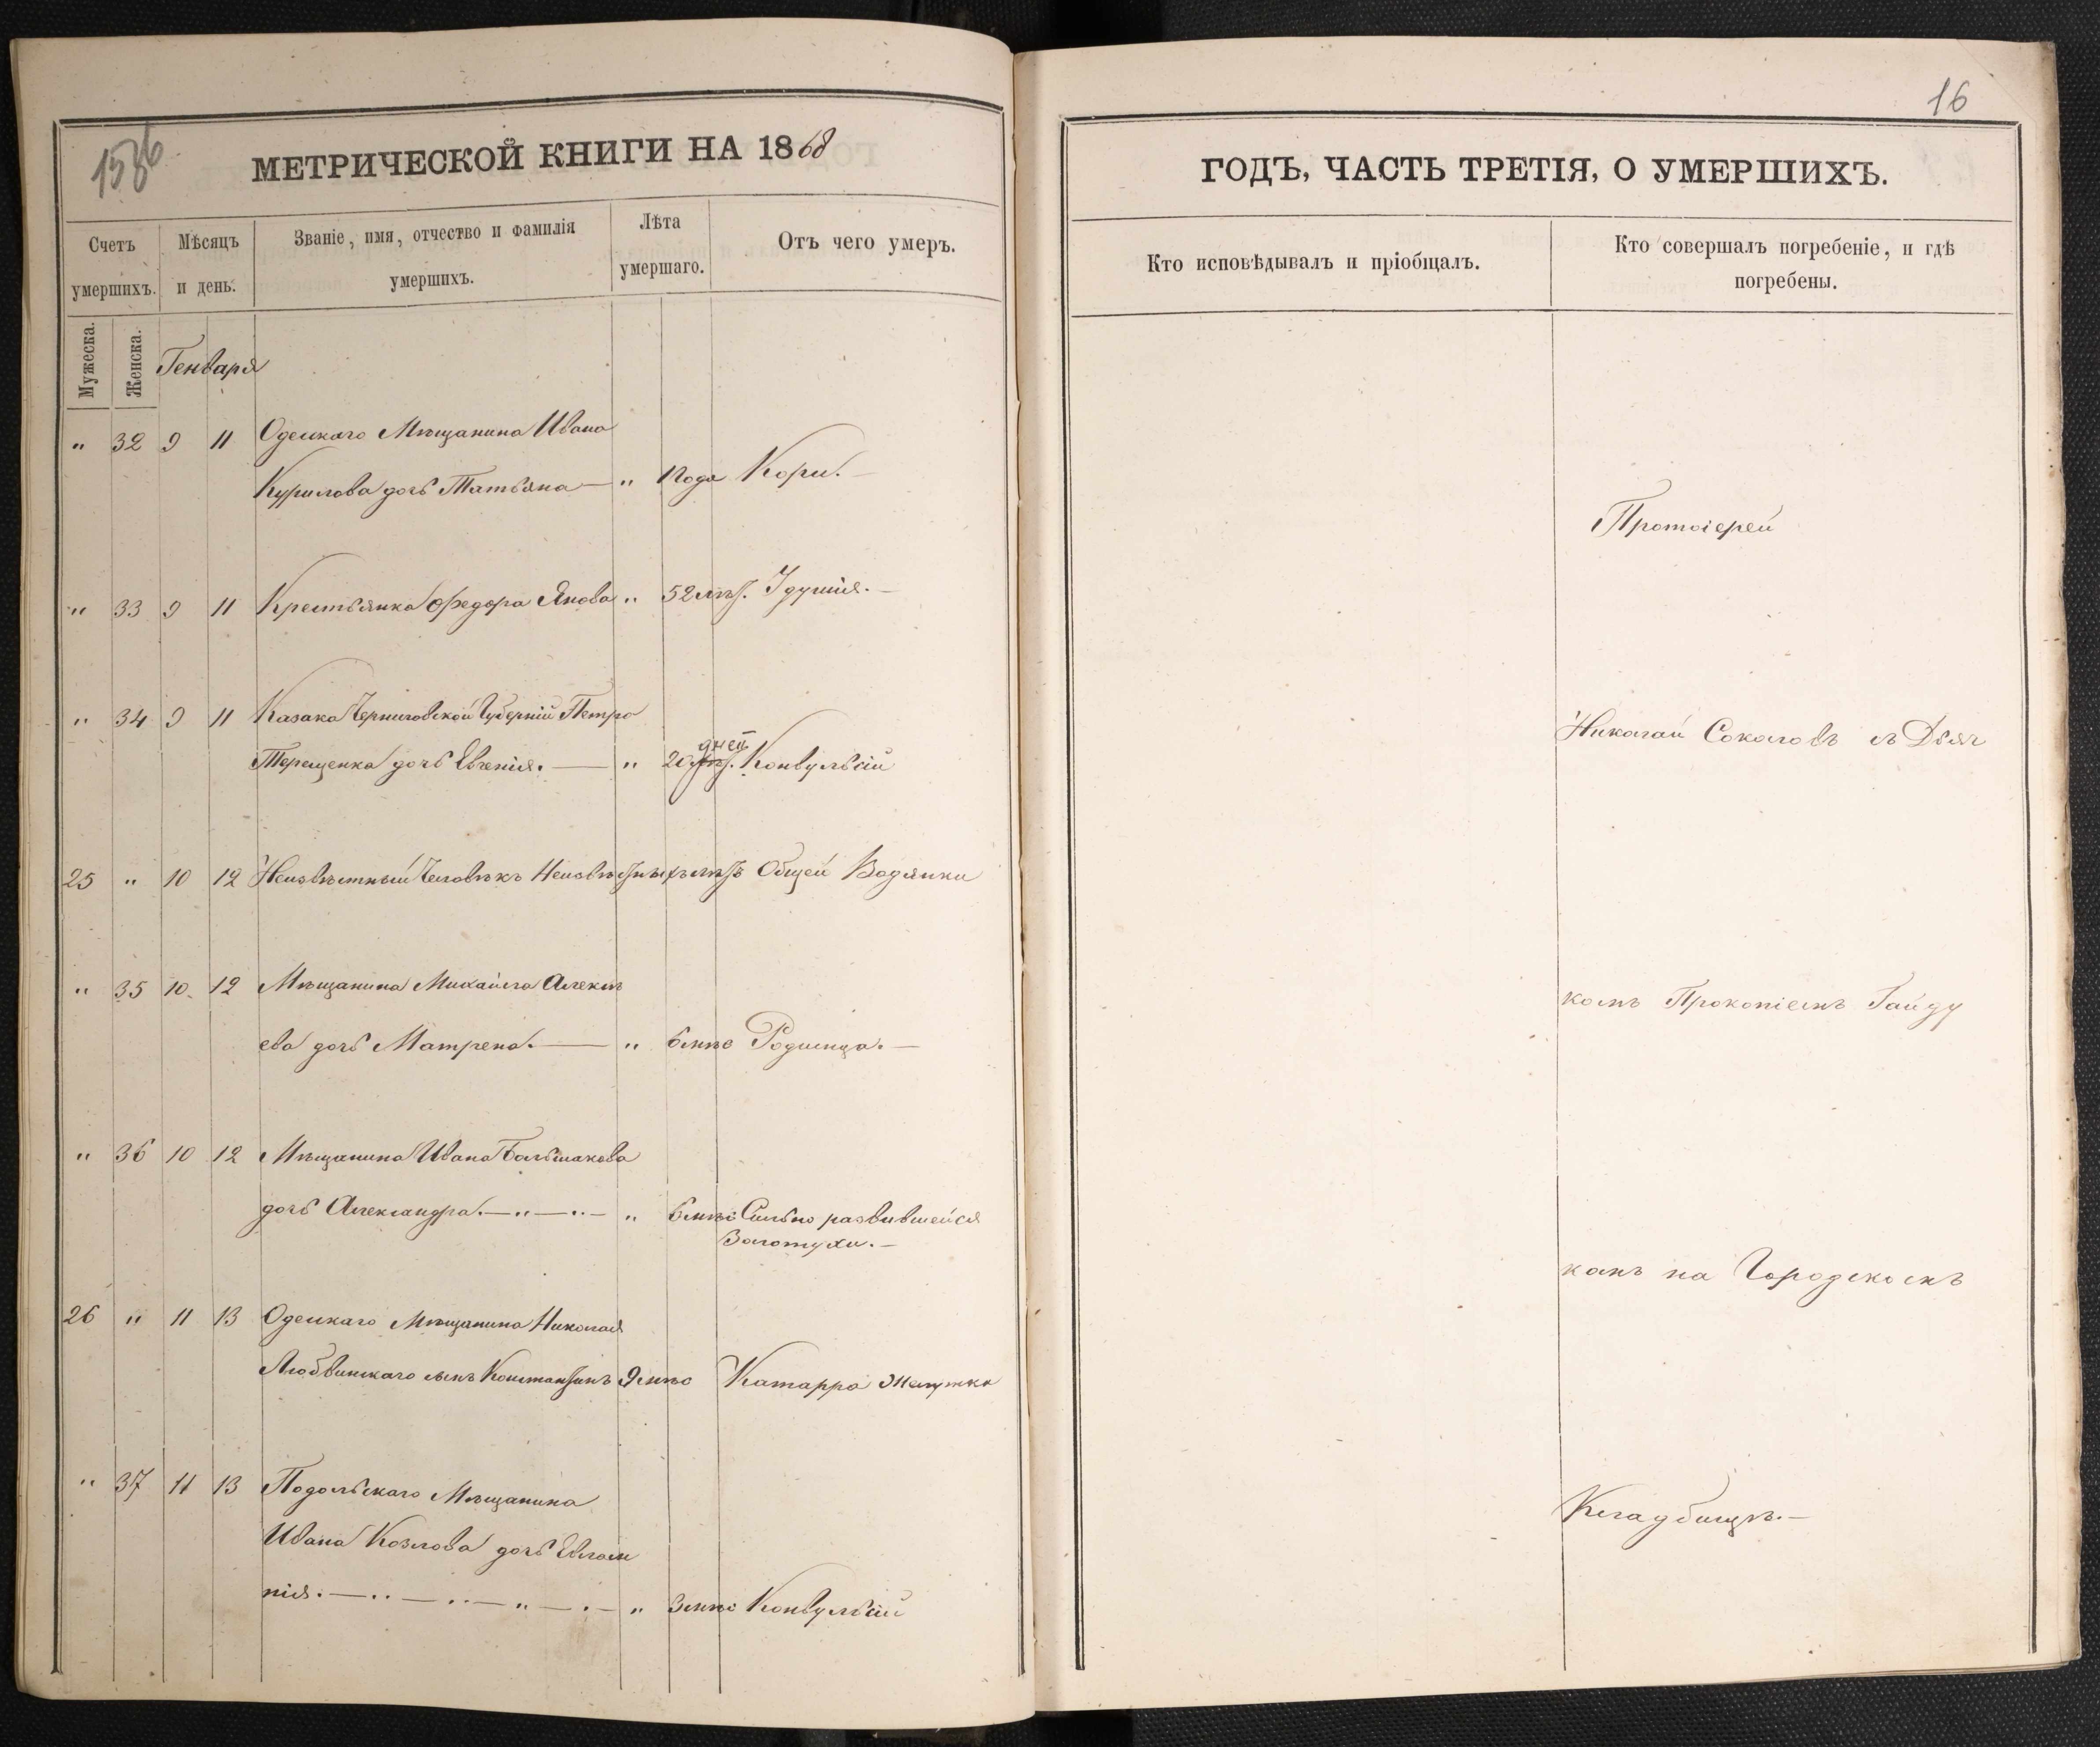 1586
МЕТРИЧЕСКОЙ КНИГИ НА 1868
Счетъ умершихъ.
Мѣсяцъ и день.
Званіе, имя, отчество и фамилія умершихъ.
Лѣта умершаго.
Отъ чего умеръ.
Мужеска.
Женска.
Генваря
" 32 9 11 Одескаго Мѣщанина Ивана
Курилова дочь Татьяна — " 1 Года Кори. —
" 33 9 11 Крестьянка Федора Янова " 52 лѣт. Удушія. —
" 34 9 11 Казака Черниговской Губерніи Петра
дней
Терещенка дочь Евгенія. — " 20 лѣт. Конвульсіи
25 " 10 12 Неизвѣстный Человѣкъ Неизвѣстныхъ лѣтъ Общей Водянки
" 35 10 12 Мѣщанина Михаила Алексѣ
ева дочь Матрена. — " 6 мѣс Родимца. —
" 36 10 12 Мѣщанина Ивана Большакова
дочь Александра. — " — " — " 6 мѣс Сильно развившейся
Золотухи. —
26 " 11 13 Одескаго Мѣщанина Николая
сынъ Константинъ 9 мѣс Катарра Желудка
" 37 11 13 Подольскаго Мѣщанина
Ивана Козлова дочь Евлам
пія. — " — " — " — " — " 3 мѣс Конвульсіи
16
ГОДЪ, ЧАСТЬ ТРЕТІЯ, О УМЕРШИХЪ.
Кто исповѣдывалъ и пріобщалъ.
Кто совершалъ погребеніе, и гдѣ погребены.
Протоіерей
Николай Соколовъ съ Дьяч
комъ Прокопіемъ Гайду
камъ на Городскомъ
Кладбищѣ. —